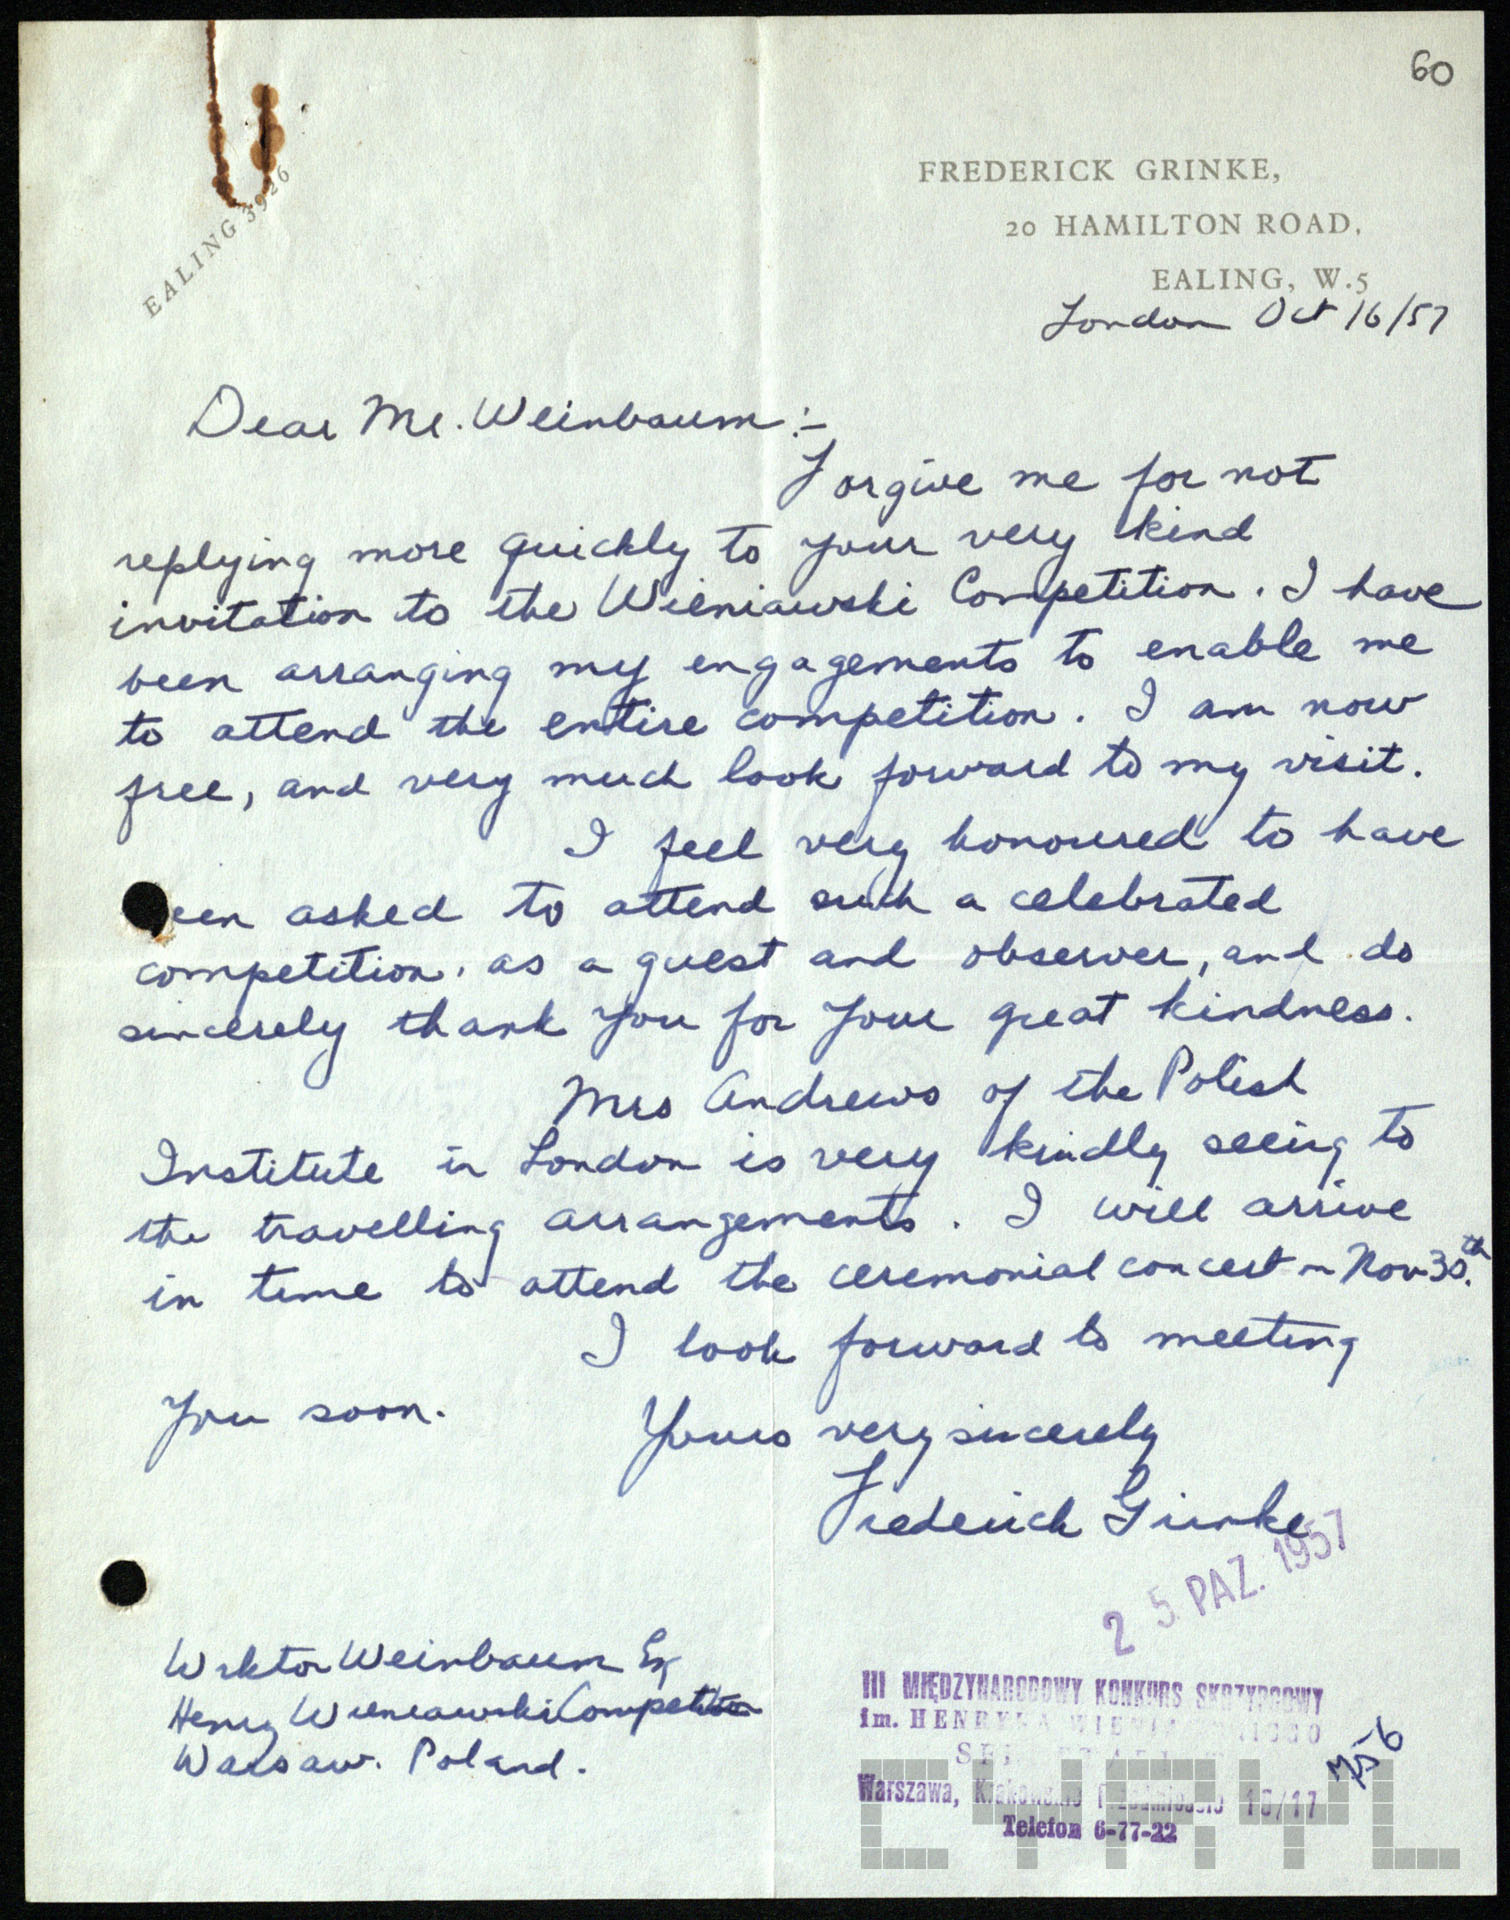 60
EALING 3926
FREDERICK GRINKE,
20 HAMILTON ROAD,
EALING, W.5
London Oct 16/57
Dear Mr. Weinbaum:-
Forgive me for not
replying more quickly to your very kind
invitation to the Wieniawski Competition. I have
been arranging my engagements to enable me
to attend the entire competition. I am now
free, and very much look forward to my visit.
I feel very honoured to have
been asked to attend such a celebrated
competition, as a guest and observer, and do
sincerely thank you for your great kindness.
Mrs Andrews of the Polish
Institute in London is very kindly seeing to
the travelling arrangements. I will arrive
in time to attend the ceremonial concert on Nov 30th.
I look forward to meeting
you soon.
Yours very sincerely
Frederick Grinke
25 PAZ. 1957
Wiktor Weinbaum Esq
Henry Wieniawski Competition
Warsaw. Poland.
III MIĘDZYNARODOWY KONKURS SKRZYPCOWY
im. HENRYKA WIENIAWSKIEGO
Warszawa, Krakowskie Przedmieście 15/17
Telefon 6-77-22
CYRYL